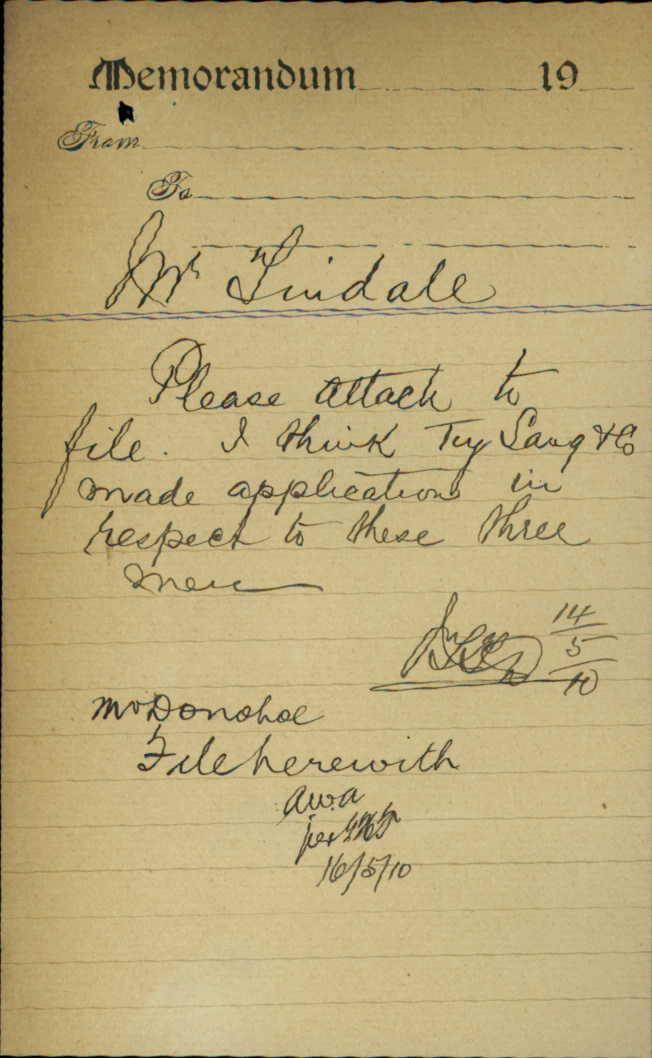 Memorandum 19
From
To
Mr Tindale
Please attach to
file. I think Tiy Sang & Co
made application in
respect to these three
men
14/5/10
Mr Donohoe
File herewith
AWA
per
16/5/10